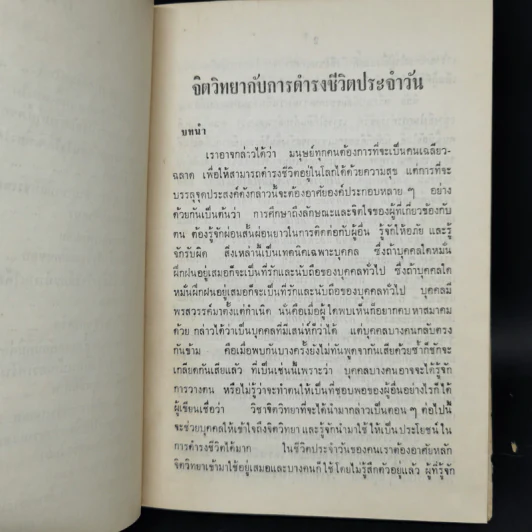 จิตวิทยากับการดำรงชีวิตประจำวัน
บทนำ
เราอาจกล่าวได้ว่า มนุษย์ทุกคนต้องการที่จะเป็นคนเฉลียว-
ฉลาด เพื่อให้สามารถดำรงชีวิตอยู่ในโลกได้ด้วยความสุข แต่การที่จะ
บรรลุจุดประสงค์ดังกล่าวนี้จะต้องอาศัยองค์ประกอบหลาย ๆ อย่าง
ด้วยกันเป็นต้นว่า การศึกษาถึงลักษณะและจิตใจของผู้ที่เกี่ยวข้องกับ
ตน ต้องรู้จักผ่อนสั้นผ่อนยาวในการติดต่อกับผู้อื่น รู้จักให้อภัย และรู้
จักรับผิด สิ่งเหล่านี้เป็นเทคนิคเฉพาะบุคคล ซึ่งถ้าบุคคลใดหมั่น
ฝึกฝนอยู่เสมอก็จะเป็นที่รักและนับถือของบุคคลทั่วไป ซึ่งถ้าบุคคลใด
หมั่นฝึกฝนอยู่เสมอก็จะเป็นที่รักและนับถือของบุคคลทั่วไป บุคคลมี
พรสวรรค์มาตั้งแต่กำเนิด นั่นคือเมื่อผู้ใดพบเห็นก็อยากคบหาสมาคม
ด้วย กล่าวได้ว่าเป็นบุคคลที่มีเสน่ห์ก็ว่าได้ แต่บุคคลบางคนกลับตรง
กันข้าม คือเมื่อพบกันบางครั้งยังไม่ทันพูดจากันเสียด้วยซ้ำก็ชักจะ
เกลียดกันเสียแล้ว ที่เป็นเช่นนี้เพราะว่า บุคคลบางคนอาจจะได้รู้จัก
การวางตน หรือไม่รู้ว่าจะทำตนให้เป็นที่ชอบพอของผู้อื่นอย่างไรก็ได้
ผู้เขียนเชื่อว่า วิชาจิตวิทยาที่จะได้นำมากล่าวเป็นตอน ๆ ต่อไปนี้
จะช่วยบุคคลให้เข้าใจถึงจิตวิทยา และรู้จักนำมาใช้ ให้เป็นประโยชน์ ใน
การดำรงชีวิตได้มาก ในชีวิตประจำวันของคนเราต้องอาศัยหลัก
จิตวิทยาเข้ามาใช้อยู่เสมอและบางคนก็ใช้ โดยไม่รู้สึกตัวอยู่แล้ว ผู้ที่รู้จัก